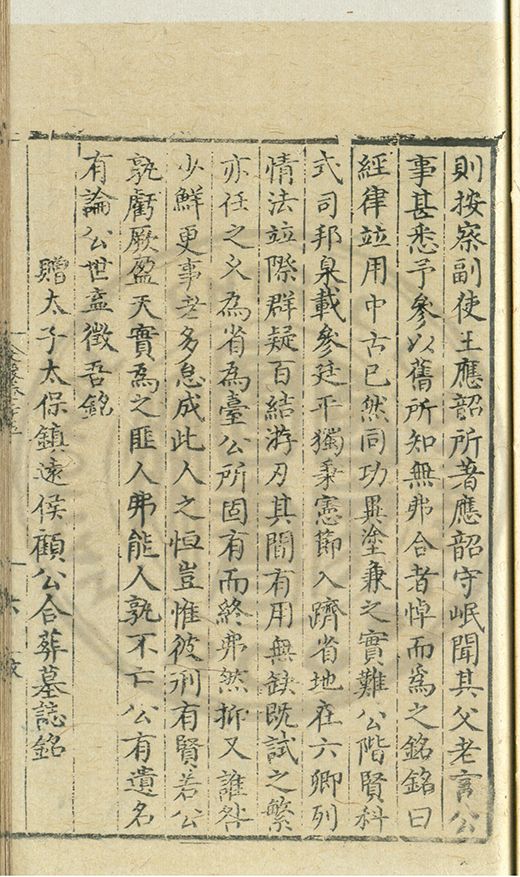 則按察副使王應韶所著應韶守岷聞其父老言公
事甚悉予參以舊所知無弗合者悼而爲之銘銘曰
經律並用中古已然同功異塗兼之實難公階賢科
式司邦臬載參廷平獨秉憲節入躋省地在六卿列
情法並際群疑百結游刃其間有用無缺既試之繁
亦任之久為省為臺公所固有而終弗然抑又誰咎
少鮮更事老多怠成此人之恒豈惟彼刑有賢若公
孰虧厥盈天實為之匪人弗能人孰不亡公有遺名
有論公世盍徵吾銘
贈太子太保鎮遠侯顧公合葬墓誌銘